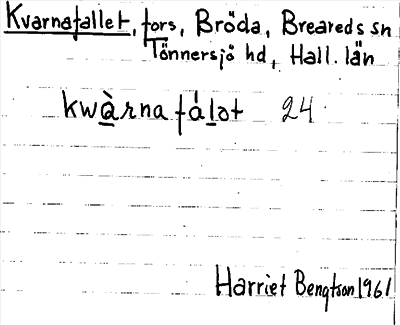 Kvarnafallet, fors, Bröda, Breareds sn
Tönnersjö hd, Hall. län
kwàrna fálət 24
Harriet Bengtson 1961